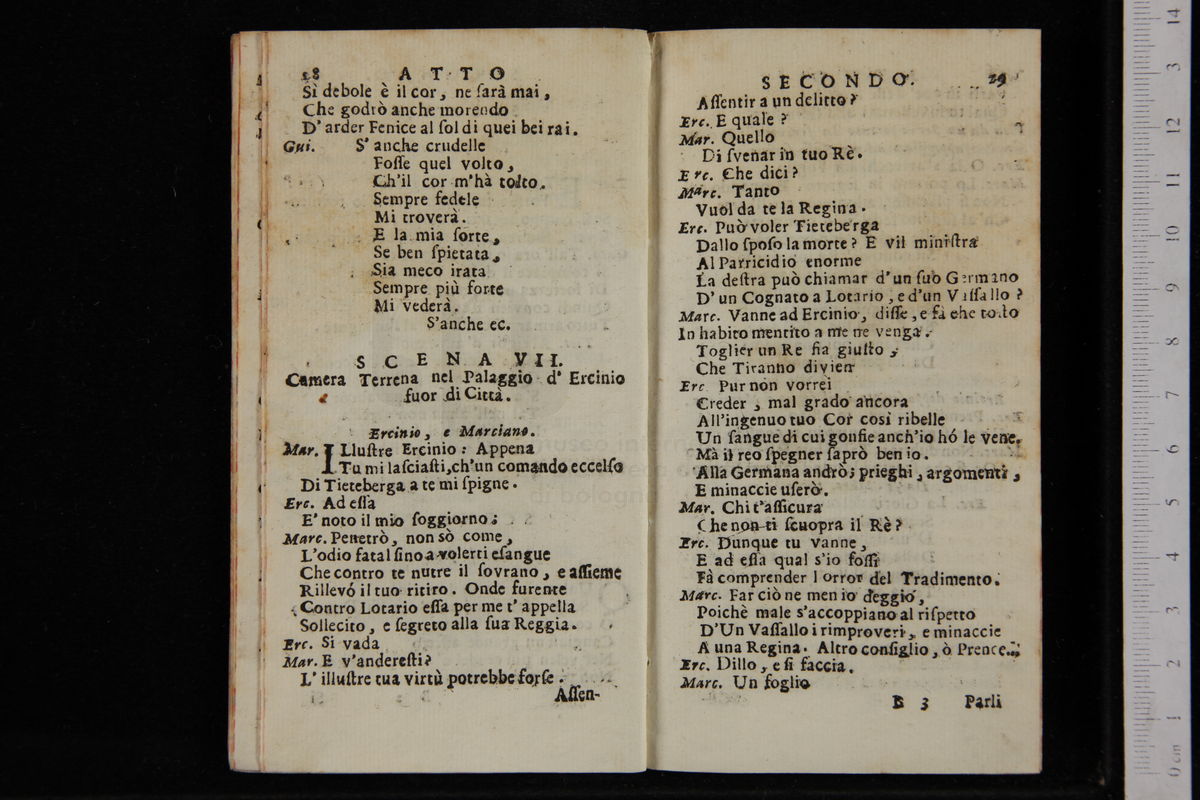 28 ATTO
Sì debole è il cor, ne sarà mai,
Che godrò anche morendo
D'arder Fenice al sol di quei bei rai.
Gui. S'anche crudelle
Fosse quel volto,
Ch'il cor m'hà tolto.
Sempre fedele
Mi troverà.
E la mia sorte,
Se ben spietata,
Sia meco irata
Sempre più forte
Mi vederà.
S'anche ec.
SCENA VII.
Camera Terrena nel Palaggio d'Ercinio
fuor di Città.
Ercinio, e Marciano.
Mar. ILlustre Ercinio: Appena
Tu mi lasciasti, ch'un comando eccelso
Di Tieteberga a te mi spigne.
Erc. Ad essa
E' noto il mio soggiorno;
Marc. Penetrò, non sò come,
L'odio fatal sino a volerti esangue
Che contro te nutre il sovrano, e assieme
Rillevó il tuo ritiro. Onde furente
Contro Lotario essa per me t'appella
Sollecito, e segreto alla sua Reggia.
Erc. Si vada
Mar. E v'anderesti?
L'illustre tua virtù potrebbe forse.
Assen-
SECONDO. 29
Assentir a un delitto?
Erc. E quale?
Mar. Quello
Di svenar in tuo Rè.
Erc. Che dici?
Marc. Tanto
Vuol da te la Regina.
Erc. Può voler Tieteberga
Dallo sposo la morte? E vil ministra
Al Parricidio enorme
La destra può chiamar d'un suo Germano
D'un Cognato a Lotario, e d'un Vassallo?
Marc. Vanne ad Ercinio, disse, e fà che tosto
In habito mentito a me ne venga.
Toglier un Re fia giusto,
Che Tiranno divien
Erc Pur non vorrei
Creder, mal grado ancora
All'ingenuo tuo Cor così ribelle
Un sangue di cui gonfie anch'io hó le vene.
Mà il reo spegner saprò ben io.
Alla Germana andrò; prieghi, argomenti,
E minaccie userò.
Mar. Chi t'assicura
Che non ti scuopra il Rè?
Erc. Dunque tu vanne,
E ad essa qual s'io fossi
Fà comprender l orror del Tradimento.
Marc. Far ciò ne men io deggió,
Poichè male s'accoppiano al rispetto
D'Un Vassallo i rimproveri, e minaccie
A una Regina. Altro consiglio, ò Prence.
Erc. Dillo, e si faccia.
Marc. Un foglio
B 3 Parli
0 cm 1 2 3 4 5 6 7 8 9 10 11 12 13 14